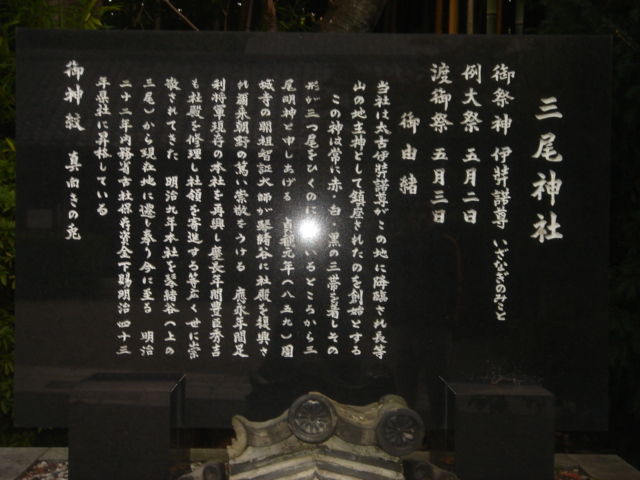 三尾神社
御祭神 伊弉諾尊 いざなぎのみこと
例大祭 五月二日
渡御祭 五月三日
御由緒
当社は太古伊弉諾尊がこの地に降臨され長等
山の地主神として鎮座されたのを創始とする
この神は常に赤・白・黒の三帯を着しその
形が三つ尾をひくの いるところから三
尾明神と申し上げる 貞観元年(八五九)園
城寺の開祖智証大師が琴緒谷に社殿を復興さ
れ爾来朝野の萬い崇敬をうける 應永年間足
利将軍現存の本社を再興し慶長年間豊臣秀吉
も社殿を修理し社領を寄進する等広く世に崇
敬されてきた 明治九年本社を琴緒谷(上の
三尾)から現在地に遷し奉り今に至る 明治
二十二年内務省古社保存資金下賜明治四十三
年県社に昇格している
御神紋 真向きの兎